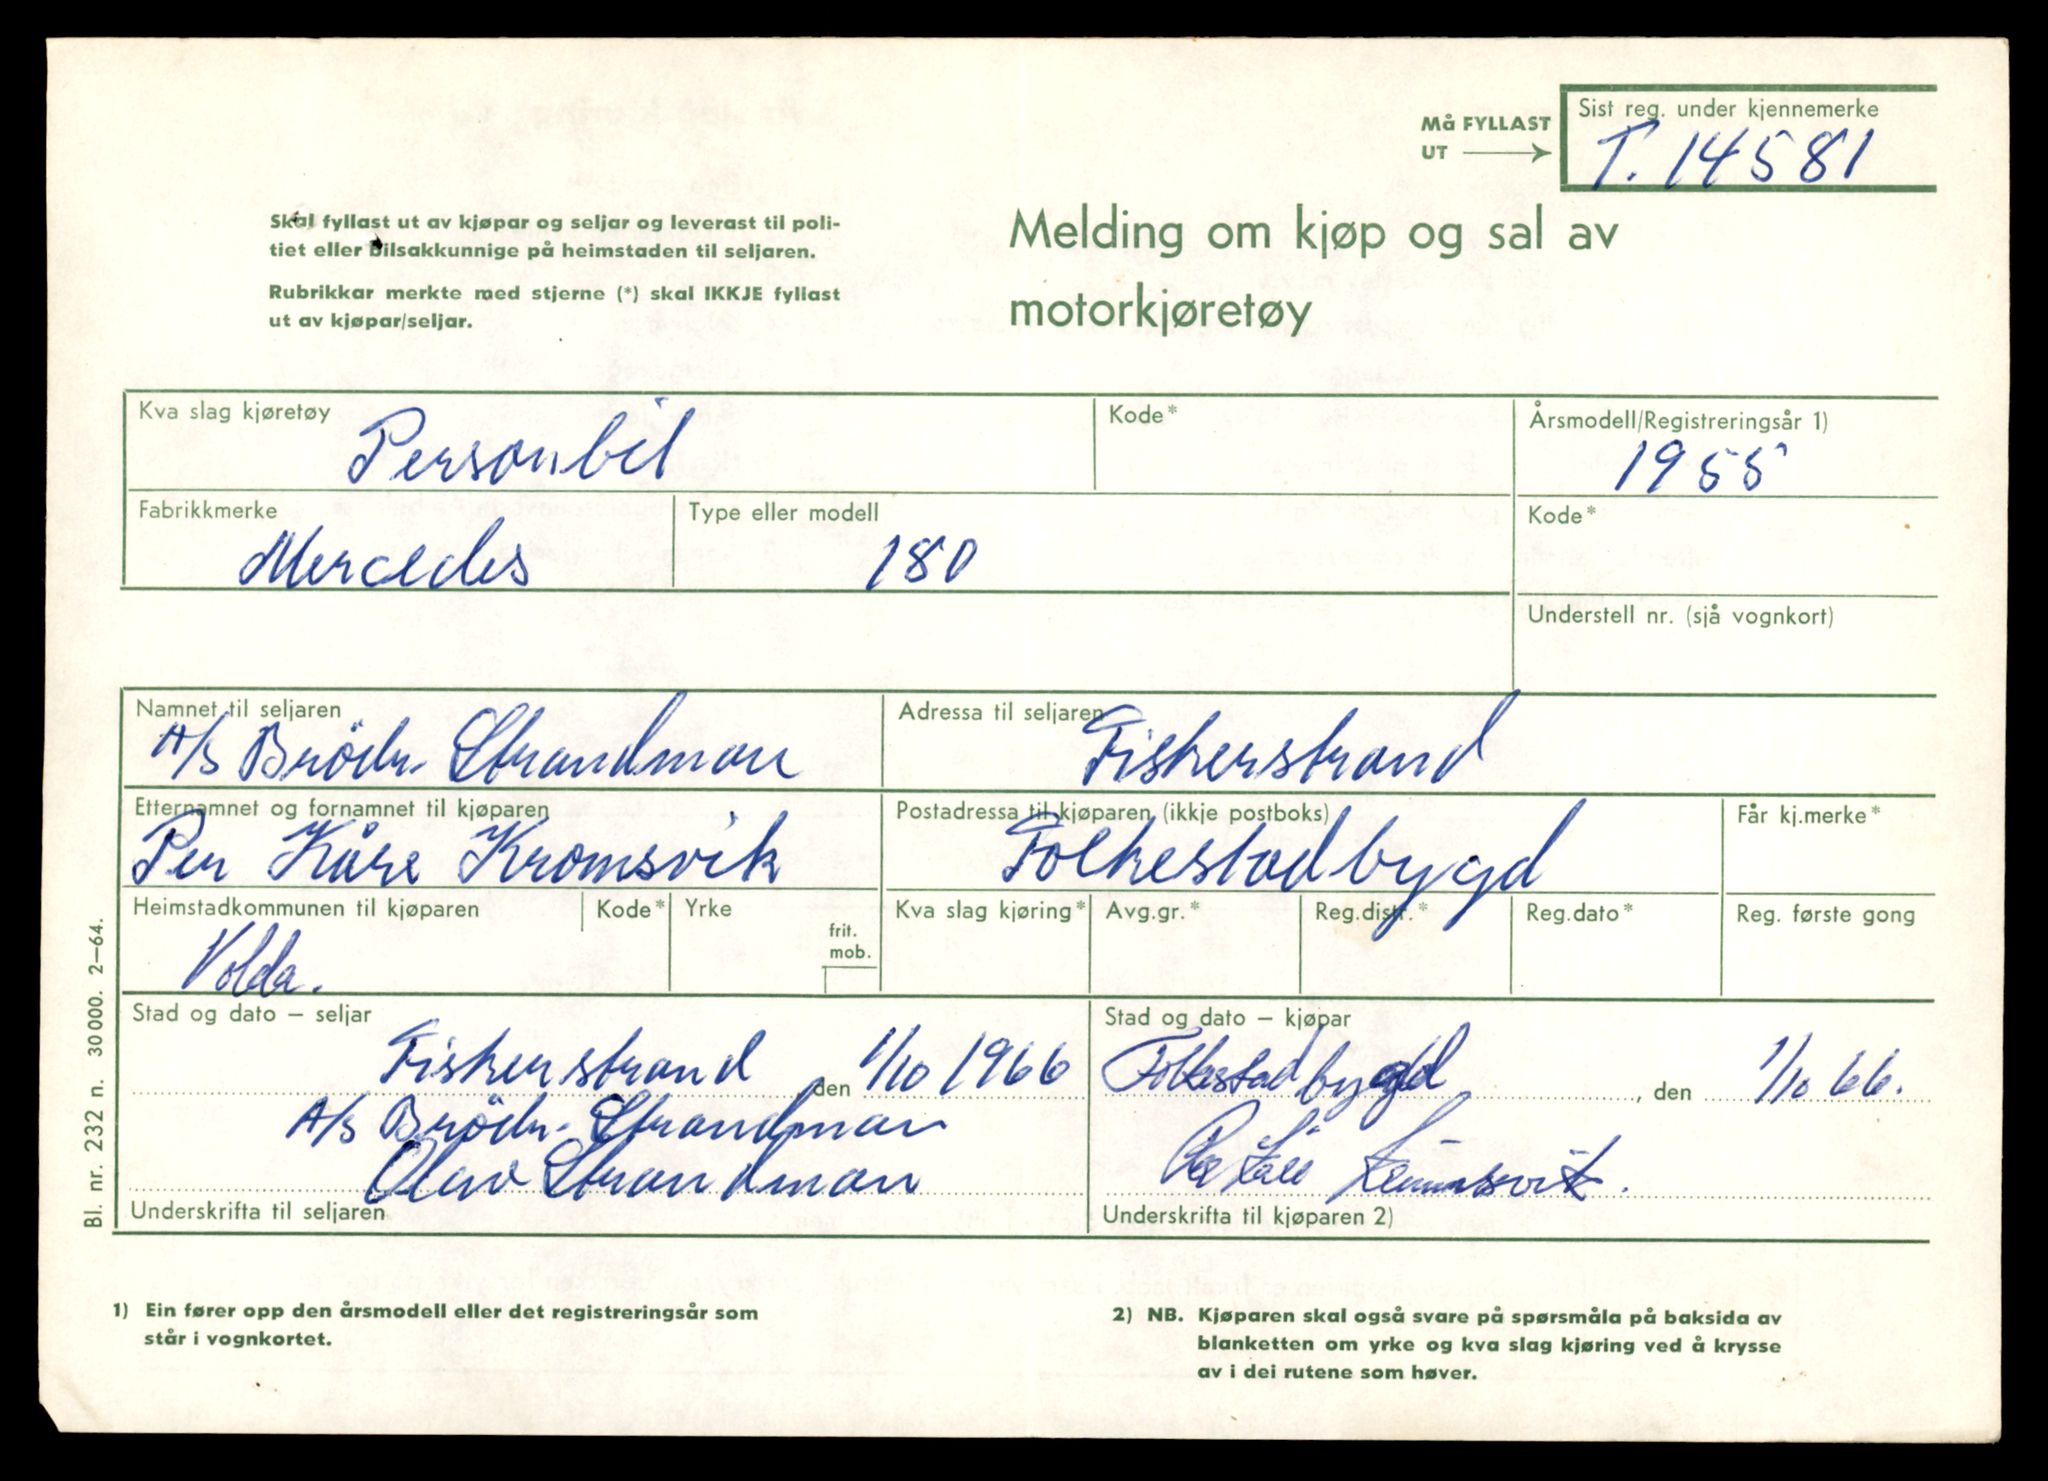 Må FYLLAST
UT
Sist reg. under kjennemerke
T. 14581
Skal fyllast ut av kjøpar og seljar og leverast til poli-
tiet eller bilsakkunnige på heimstaden til seljaren.
Rubrikkar merkte med stjerne (*) skal IKKJE fyllast
ut av kjøpar/seljar.
Melding om kjøp og sal av
motorkjøretøy
Kva slag kjøretøy
Personbil
Kode*
Årsmodell/Registreringsår 1)
1955
Fabrikkmerke
Mercedes
Type eller modell
180
Kode*
Understell nr. (sjå vognkort)
Namnet til seljaren
A/S Brödr. Strandman
Adressa til seljaren
Fiskerstrand
Etternamnet og fornamnet til kjøparen
Per Kåre Kromsvik
Postadressa til kjøparen (ikkje postboks)
Folkestadbygd
Får kj.merke*
Heimstadkommunen til kjøparen
Volda.
Kode*
Yrke
frit.
mob.
Kva slag kjøring*
Avg.gr.*
Reg.distr.*
Reg.dato*
Reg. første gong
Stad og dato – seljar
Fiskerstrand den 1/10 1966
A/S Brödr. Strandman
Olav Strandman
Underskrifta til seljaren
Stad og dato – kjøpar
Folkestadbygd, den 1/10 66.
Per Kåre Kromsvik.
Underskrifta til kjøparen 2)
Bl. nr. 232 n. 30 000. 2–64.
1) Ein fører opp den årsmodell eller det registreringsår som
står i vognkortet.
2) NB. Kjøparen skal også svare på spørsmåla på baksida av
blanketten om yrke og kva slag kjøring ved å krysse
av i dei rutene som høver.